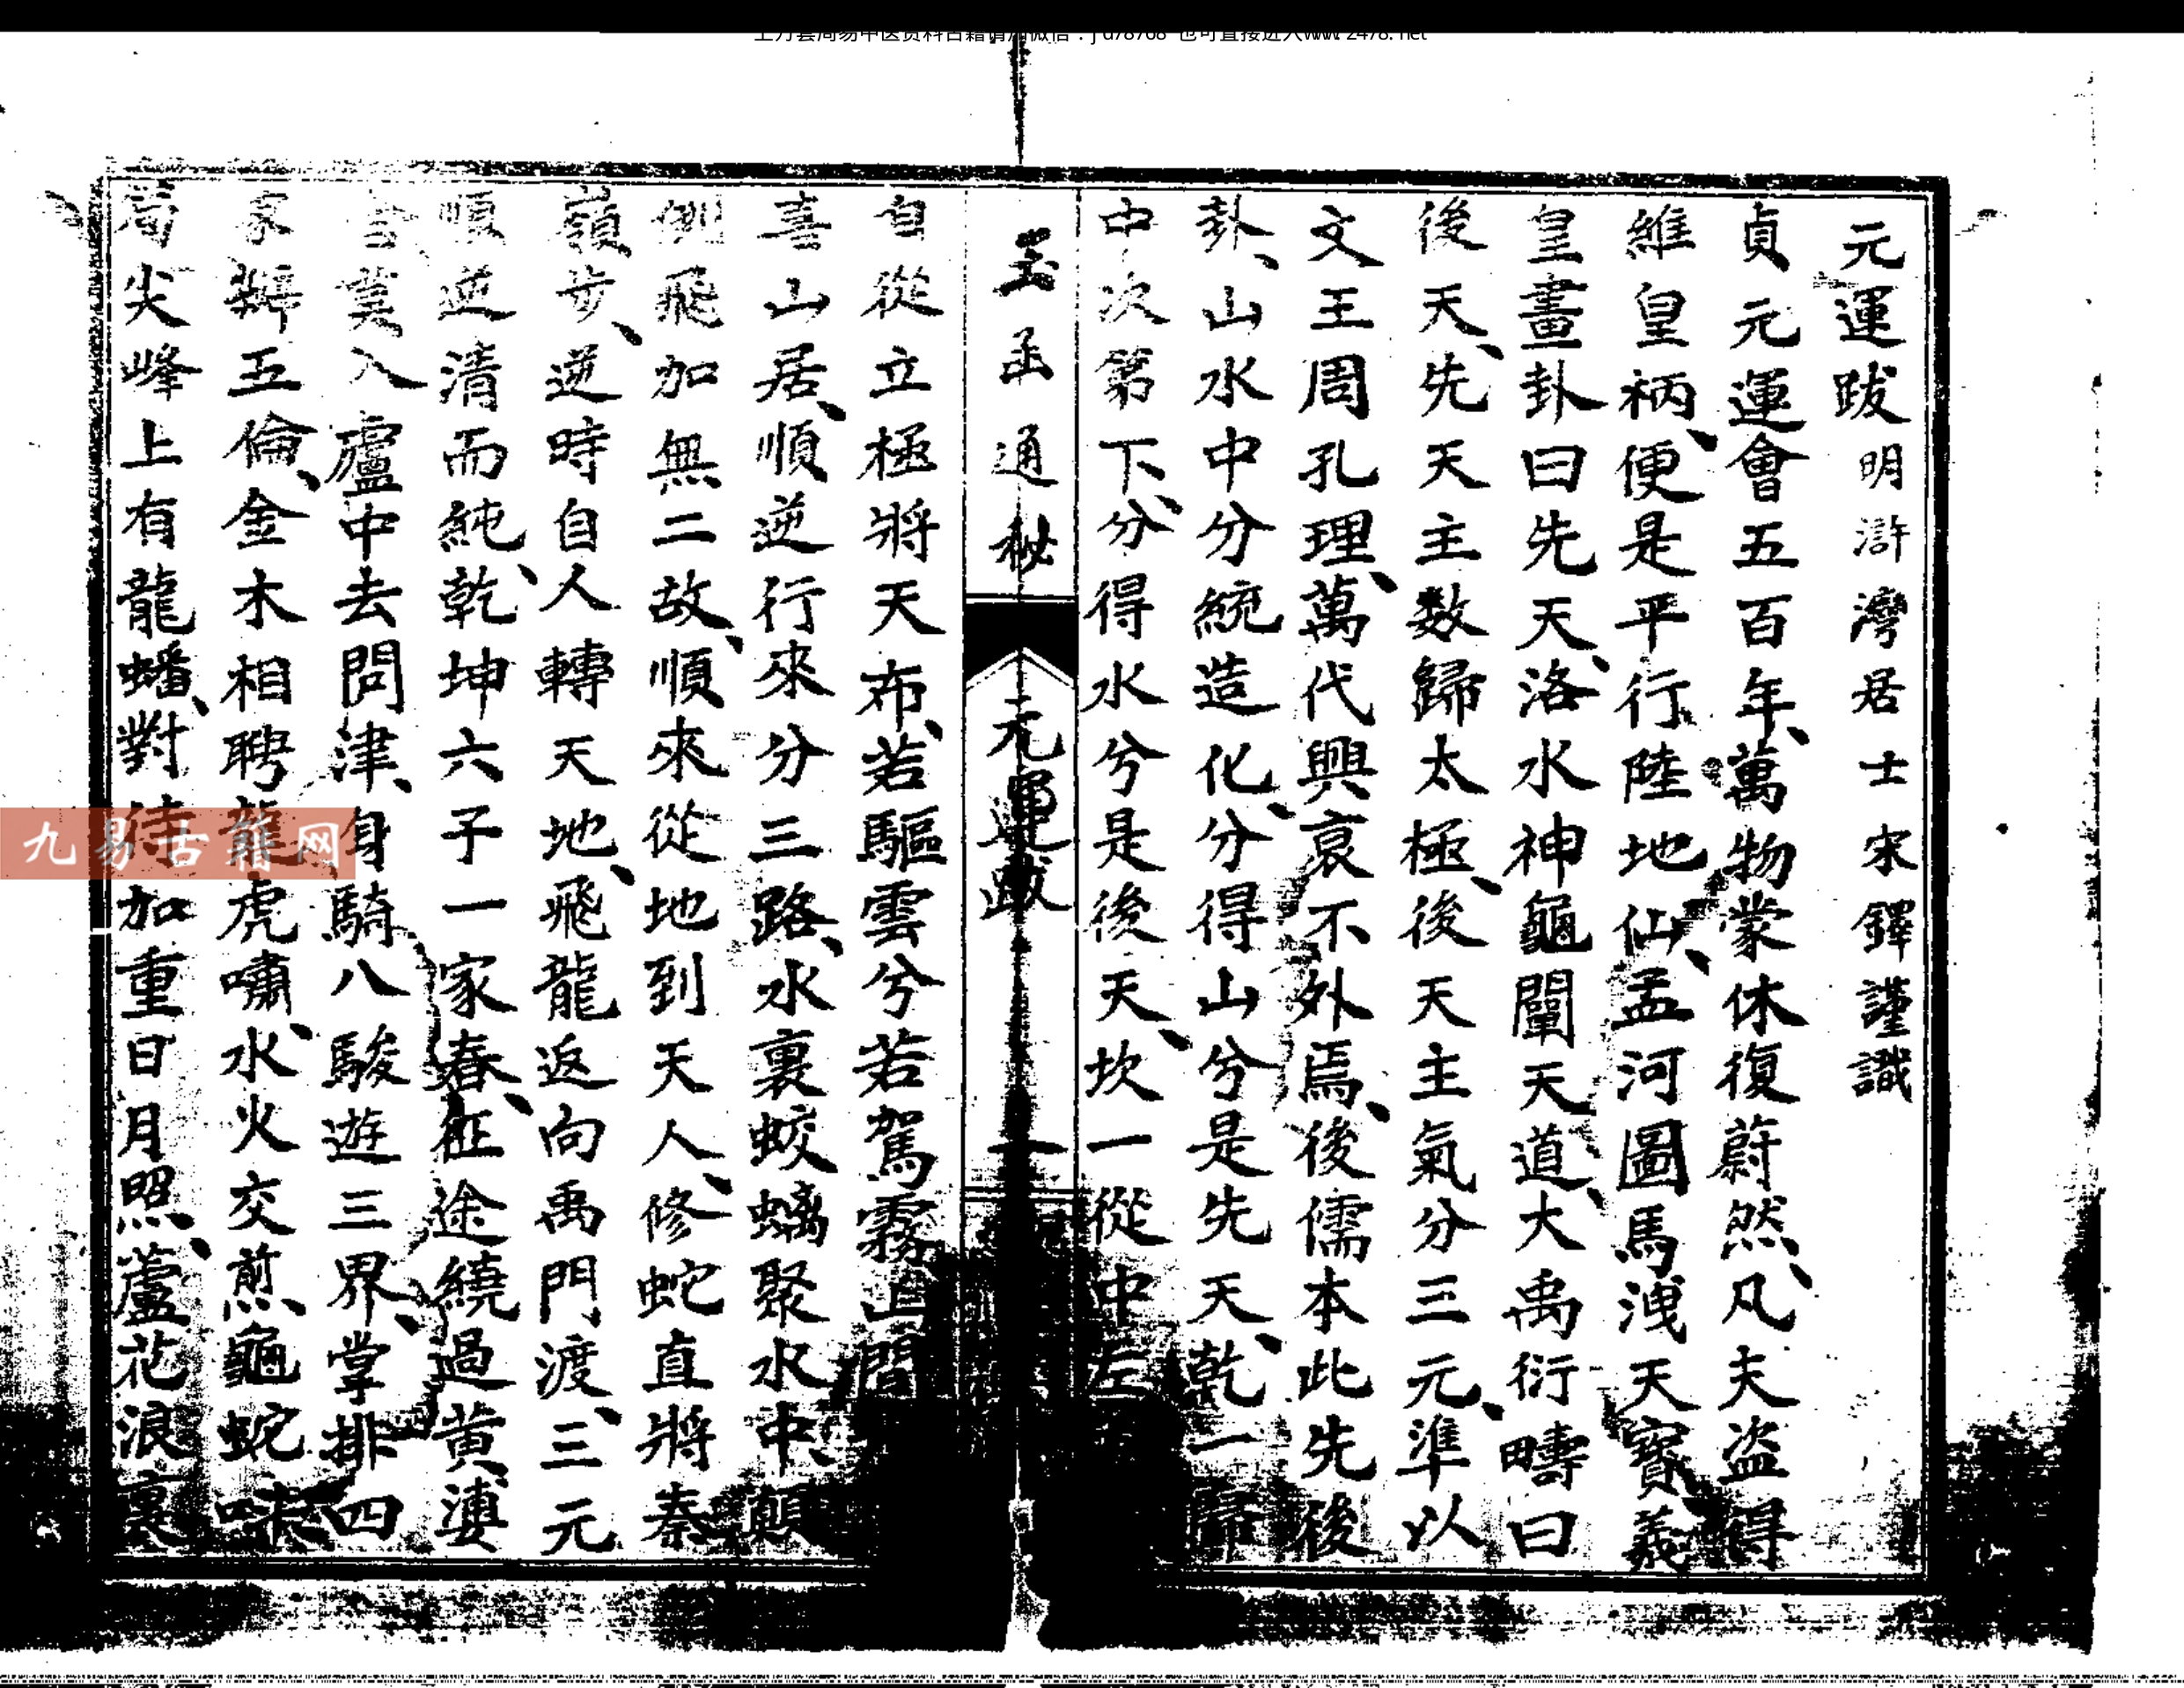 元運跋明滸灣居士宋鐸謹識
貞元運會五百年、萬物蒙休復蔚然、凡夫盜得
維皇柄、便是平行陸地仙、孟河圖馬洩天寶羲
皇畫卦曰先天、洛水神龜闡天道、大禹衍疇曰
後天、先天主數歸太極、後天主氣分三元、準以
文王周孔理、萬代興衰不外焉、後儒本此先後
卦、山水中分統造化、分得山兮是先天、乾一歸
中次第下、分得水兮是後天、坎一從中左
玉函通秘
元運跋
一
自從立極將天布、若驅雲兮若駕霧
喜山居、順逆行來分三路、水裏蛟螭聚水中、顛
倒飛加無二故、順來從地到天人、修蛇直將秦
嶺步、逆時自人轉天地、飛龍返向禹門渡、三元
順逆清而純、乾坤六子一家春、征途繞過黃
入廬中去問津、身騎八駿遊三界、掌排四
家辨五倫、金木相聘龍虎嘯、水火交煎龜蛇
尖峰上有龍蟠、對待加重日月照、蘆花浪裏
九易古籍网